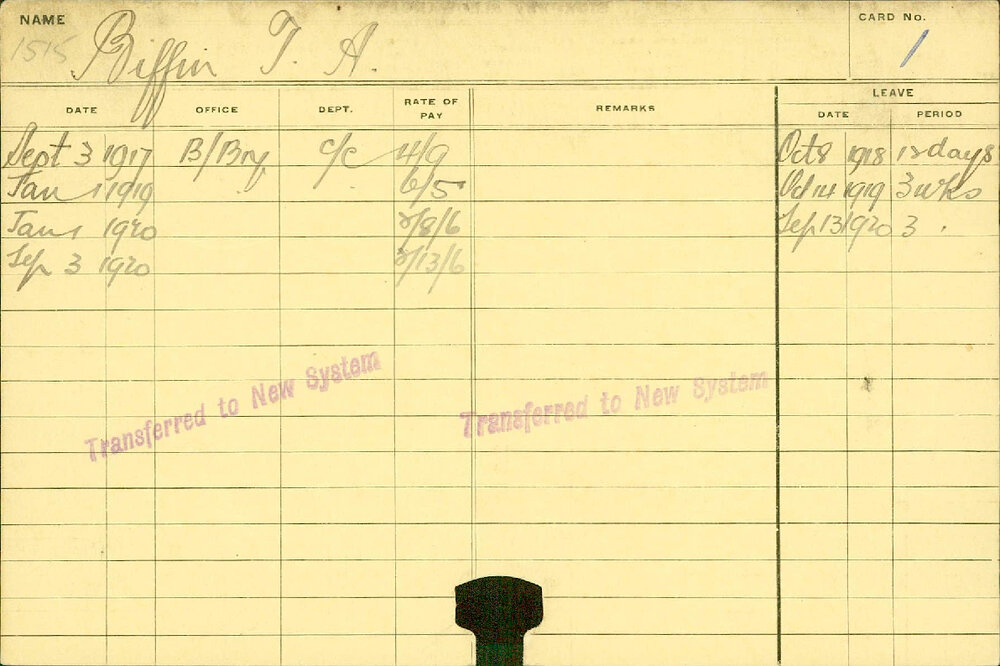 NAME
CARD No.
1515 Biffin T. A. 1
LEAVE
DATE OFFICE DEPT. RATE OF PAY REMARKS DATE PERIOD
Sept 3 1917 B/Bry c/c 4/9 Oct 8 1918 12 days
Jan 1 1919 " " 6/5 Oct 14 1919 3 wks
Jan 1 1920 2/8/6 Sep 13 1920 3 "
Sep 3 1920 2/13/6
Transferred to New System Transferred to New System